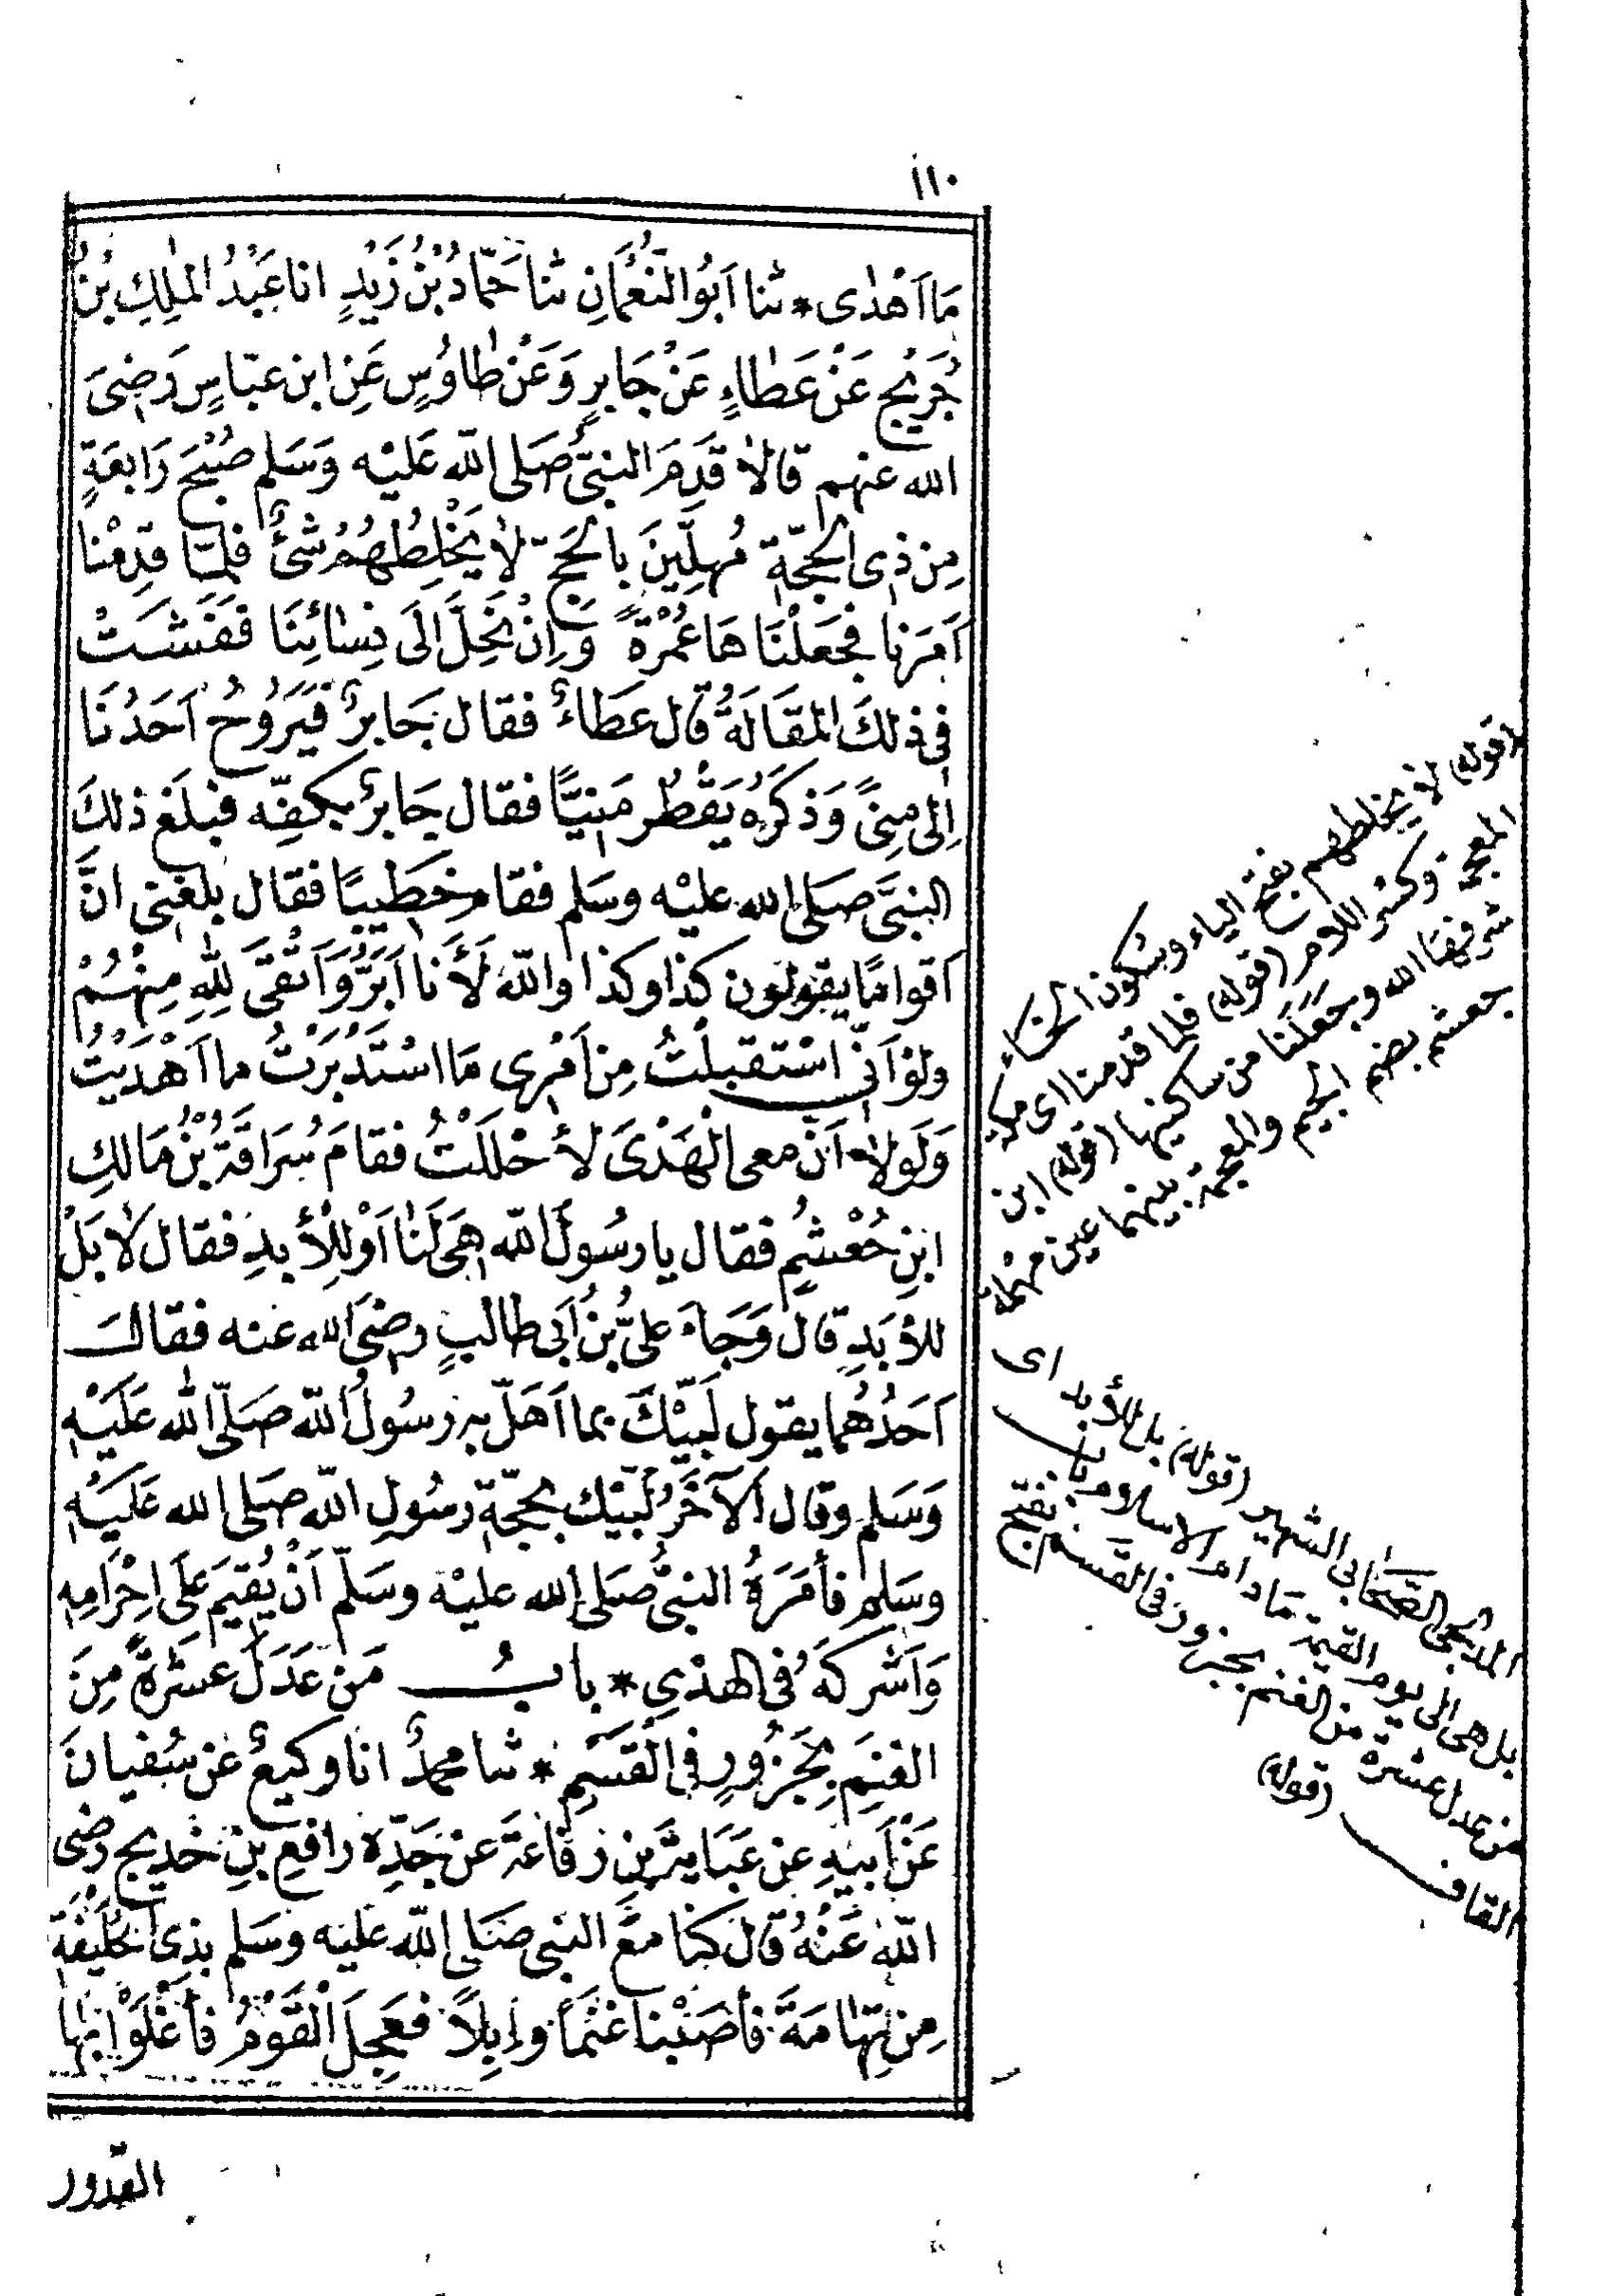 ١١٠
مَا اَهْدٰى * ثنا اَبُو النُّعْمَانِ ثنا حَمَّادُ بْنُ زَيْدٍ انا عَبْدُ المَلِكِ بْنُ
جُرَيْجٍ عَنْ عَطَاءٍ عَنْ جَابِرٍ وَعَنْ طَاوُسٍ عَنِ ابن عبّاسٍ رَضِىَ
الله عنهم قالا قَدِمَ النبىُّ صَلى الله عَليْه وَسَلم صُبْحَ رَابعَةٍ
مِن ذِى الحجّة مُهِلِّينَ بالحَجّ لا يَخْلِطُهُمْ شئٌ فلمّا قدِمْنا
اَمَرَنا فجَعَلْنَا هَا عُمْرَةً وَاِنْ نَحِلَّ اِلَى نِسَائِنَا فَفَشَتْ
فى ذلكَ المقَالَةُ قال عَطَاءٌ فقال جَابرٌ فيَرُوحُ اَحَدُنَا
اِلى مِنىً وَذكَرُه يَقْطُر مَنِيًّا فقال جَابرٌ بكفِّه فبلَغ ذلكَ
النبىَّ صَلى الله عليْه وسَلم فقام خَطيبًا فقال بلغنى انَّ
اَقوامًا يقولون كذا وكذا والله لَأَنا اَبَرُّ وَاَتْقَى لِلّهِ مِنْهُمْ
ولوْ اَنّى اسْتَقبلْتُ مِن اَمْرِى مَا اسْتَدْبَرْتُ ما اَهْدَيْتُ
وَلَوْلا اَنّ معى الْهَدْىَ لأَحْلَلْتُ فقامَ سُرَاقَةُ بْنُ مَالكِ
ابنِ جُعْشُمٍ فقال يا رسُولَ الله هِىَ لَنا اَوْ لِلْأَبدِ فقال لا بَلْ
للأَبَدِ قال وَجَاءَ علىُّ بنُ اَبى طالبٍ رضِىَ الله عنه فقالَ
اَحَدُهُما يقول لَبّيْكَ بما اَهَلّ به رسُولُ الله صَلّى الله عَلَيْهِ
وَسَلم وقال الآخَرُ لَبّيْكَ بحجّة رسُولِ الله صَلى الله عَليْهِ
وسَلم فأَمَرَهُ النبىُّ صَلى الله عليْه وسَلّم اَنْ يُقيمَ عَلَى اِحْرَامِهِ
وَاَشْركَهُ فى الهدْىِ * بابُ مَن عَدَلَ عَشرَةً مِنَ
الغنِمَ بِجَزُورٍ فى القَسْمِ * ثنا محمدٌ انا وكيعٌ عَن سُفيانَ
عَنْ اَبيهِ عن عَبَايةَ بنِ رفاعةَ عن جَدّه رافعِ بنِ خديجٍ رضى
الله عَنْهُ قال كنا معَ النبى صَلى الله عليْه وسَلم بذِى الحُلَيْفَةِ
مِن تِهامَةَ فأصَبْنا غنَمًا وإبِلاً فعَجِلَ الْقَوْمُ فأَغْلَوْا بِهَا
القدور
(قوله) لا يخلطهم بفتح الياء وسكون الخاء
المعجمة وكسر اللام (قوله) فلما قدمنا اى مكة
شرفها الله وجَعَلَنا من ساكنيها (قوله) ابن
جعشم بضم الجيم والمعجمة بينهما عين مهملة
المدلجى الصَّحابى الشهير (قوله) بل للأبد اى
بل هى الى يوم القيمة مَا دام الاسلام باب
من عدل عشرة من الغنم بجزور فى القَسم بفتح
القاف (قوله)